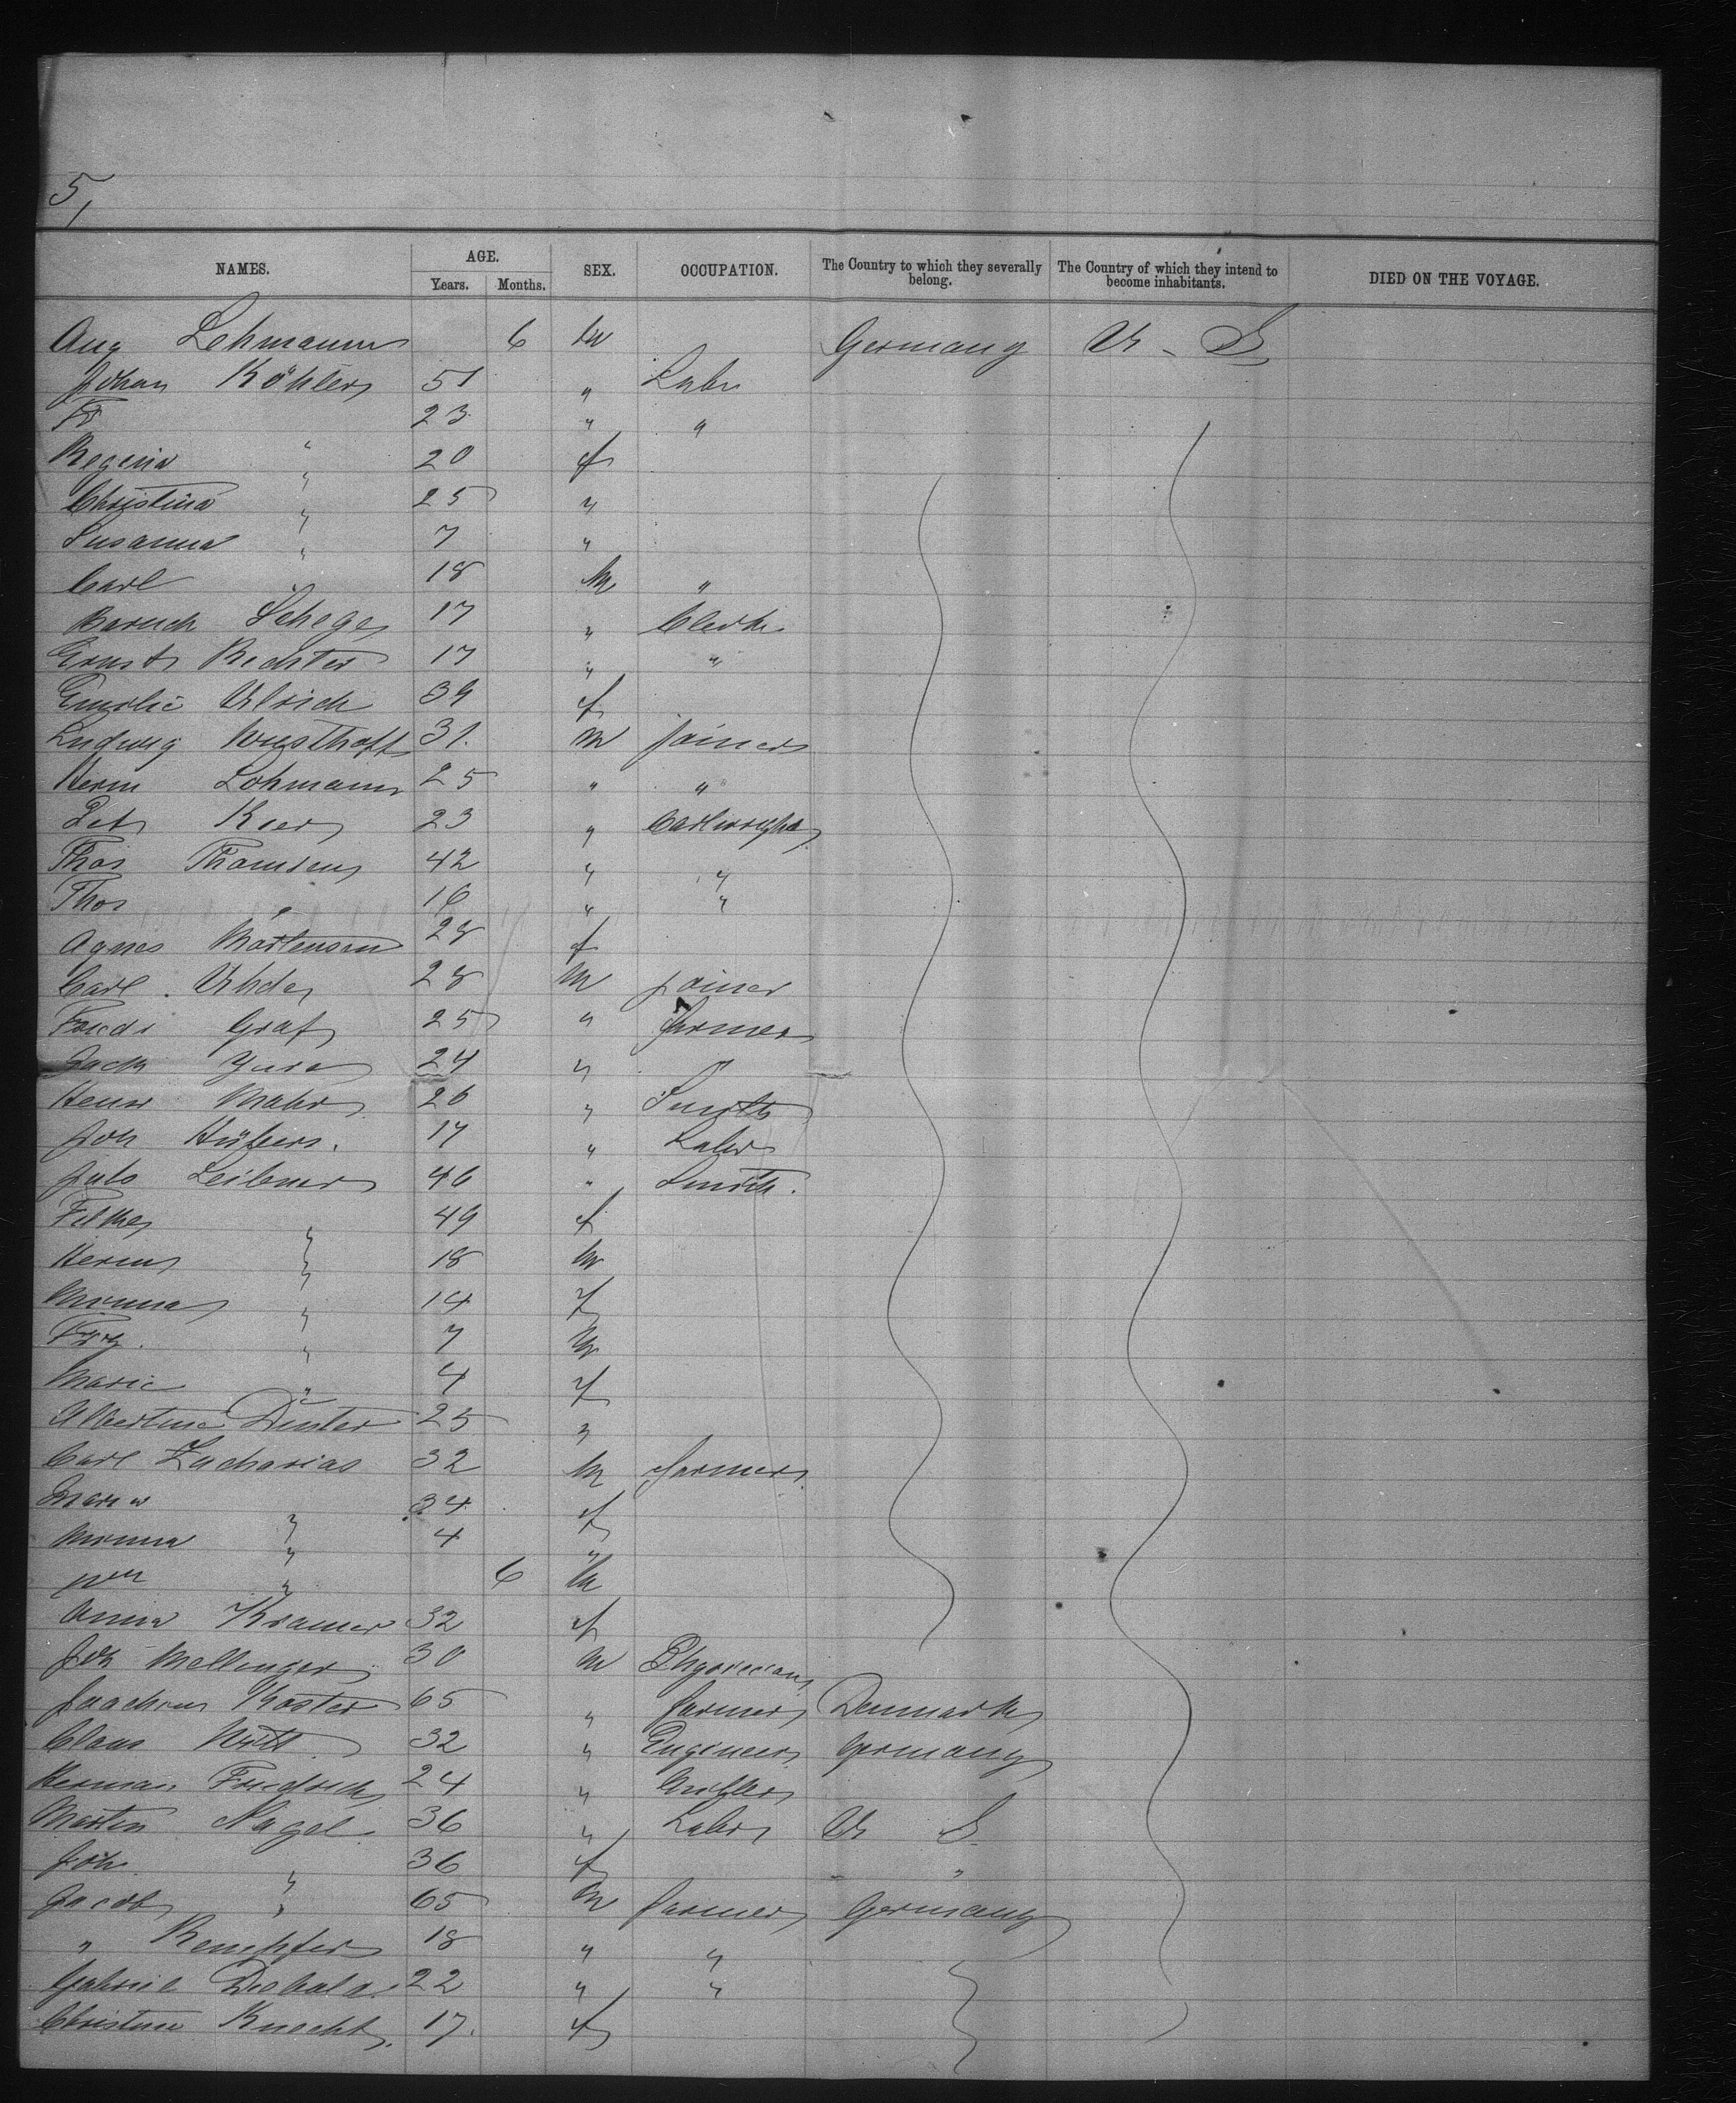 5/
NAMES. AGE. SEX. OCCUPATION. The Country to which they severally belong. The Country of which they intend to become inhabitants. DIED ON THE VOYAGE.
Years. Months.
Aug Lehmann 6 m Germany U. S
Johan Köhler 51 " Labr
Fr " 23 " "
Regina " 20 f
Christina " 25 "
Susanna " 7 "
Carl " 18 m "
Baruch Schege 17 " Clerk
Ernst Rechter 17 " "
Emilie Ulrich 39 f
Ludwig Wusthoff 31. m joiner
Herm Lohmann 25 " "
Pet Kier 23 "
Thos Thomsen 42 " "
Thos " 16 " "
Agnes Mortensen 28 f
Carl Uhde 28 m joiner
Friedr Graf 25 " farmer
Jack 24 " "
Henr Mahr 26 " Smith
Joh 17 " Labr
Juls Leibner 46 " Smith.
49 f
Herm " 18 m
Minna " 14 f
" 7 m
Marie " 4 f
Albertine Dinter 25 "
Carl Zacharias 32 m farmer
Maria " 34 f
Minna " 4 "
" 6 m
Anna Kramer 32 f
Joh Mellinger 30 m Physician
Joachim Koster 65 " farmer Denmark
Claus Witt 32 " Engineer Germany
Herman Friedrich 24 " Miller
Martin Nagel 36 " Labr U S
Joh " 36 f " "
Jacob " 65 m farmer Germany
" Kempfer 18 " "
Gabriel 22 " "
Christine Knecht. 17. f